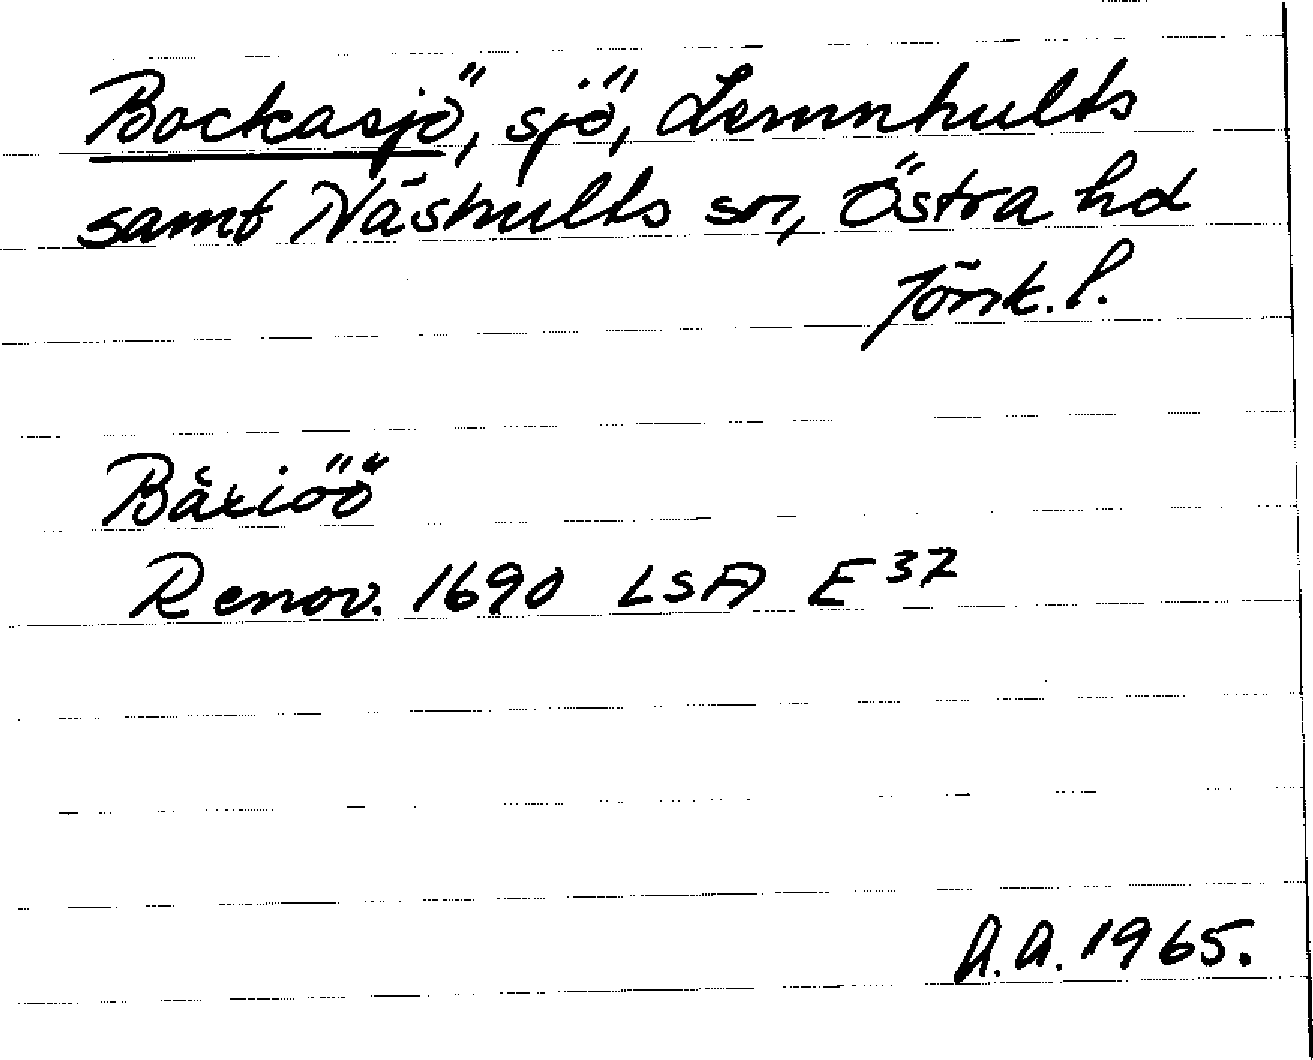 Bockasjö, sjö, Lemnhults
samt Näshults sr, Östra hd
Jönk. l.
Bäxiöö
Renov. 1690 LSA E 37
A.A. 1965.